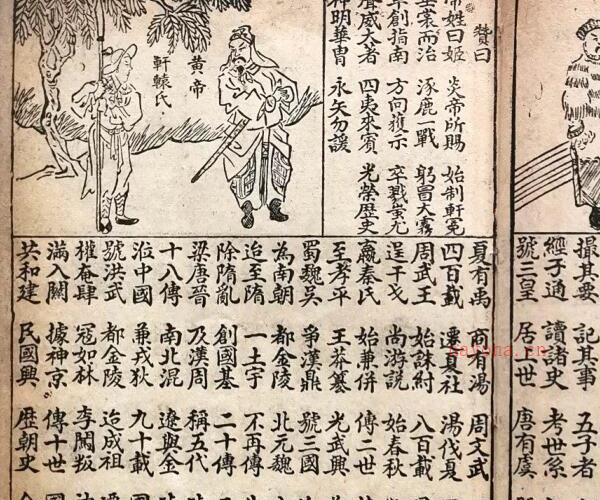 撮其要 記其事 五子者
經子通 讀諸史 考世系
號三皇 居上世 唐有虞
贊曰
帝姓曰姬 炎帝所賜 始制軒冕
垂裳而治 涿鹿一戰 躬冒大霧
車創指南 方向獲示 卒戮蚩尤
聲威大著 四夷來賓 光榮歷史
神明華冑 永矢勿諼
黃帝
軒轅氏
夏有禹 商有湯 周文武
四百載 遷夏社 湯伐夏
周武王 始誅紂 八百載
逞干戈 尚游說 始春秋
嬴秦氏 始兼併 傳二世
至孝平 王莽篡 光武興
蜀魏吳 爭漢鼎 號三國
為南朝 都金陵 北元魏
迨至隋 一土宇 不再傳
除隋亂 創國基 二十傳
梁唐晉 及漢周 稱五代
十八傳 南北混 遼與金
涖中國 兼戎狄 九十載
號洪武 都金陵 迨成祖
權奄肆 寇如林 李闖叛
滿入關 據神京 傳十世
共和建 民國興 歷朝史